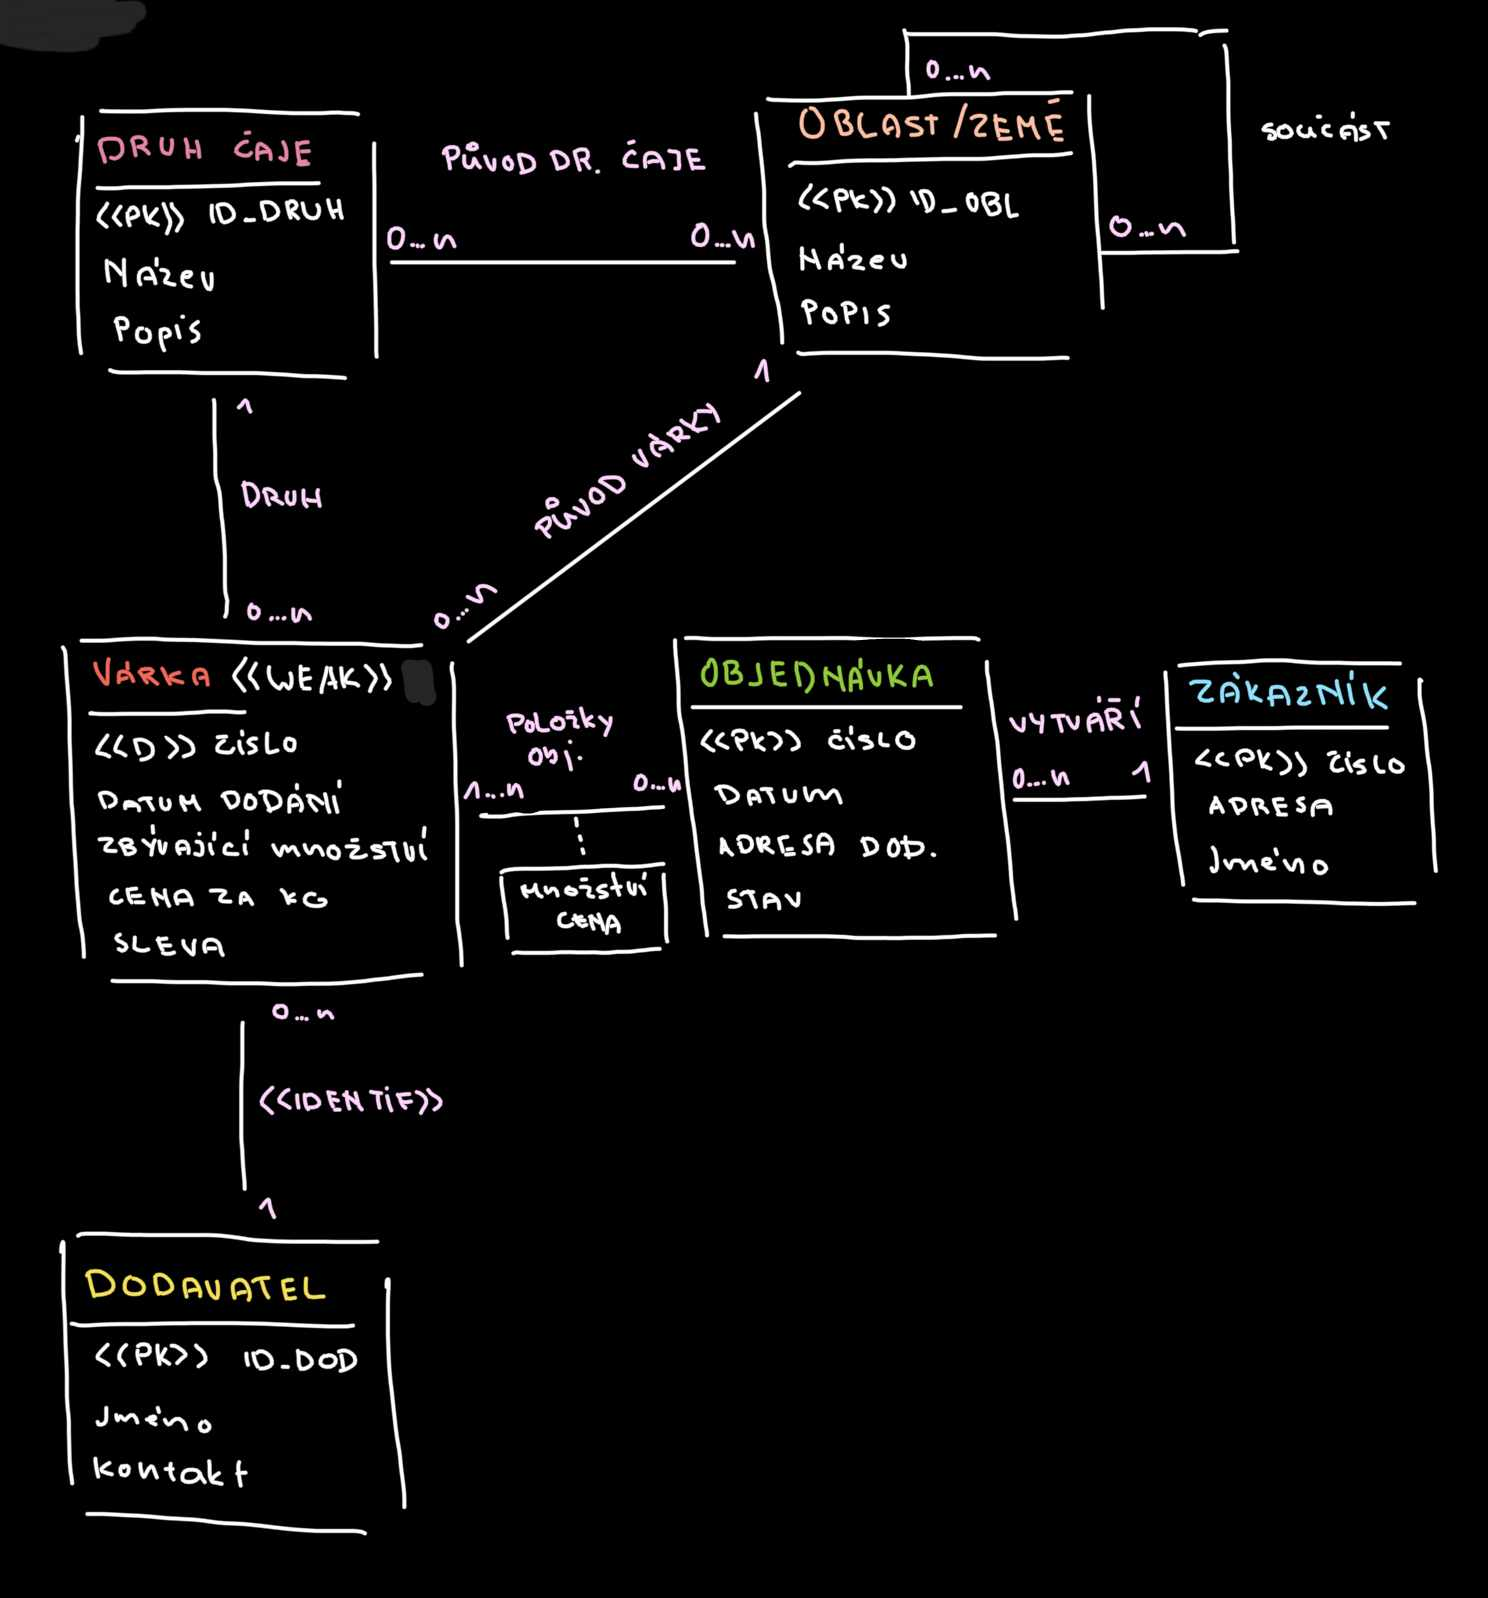 0...n
OBLAST/ZEMĚ
SOUČÁST
DRUH ČAJE
PŮVOD DR. ČAJE
<<PK>> ID_DRUH
Název
Popis
0...n
0...n
<<PK>> ID_OBL
Název
POPIS
0...n
1
DRUH
0...n
1
PŮVOD VÁRKY
0...n
VÁRKA <<WEAK>>
<<D>> číslo
DATUM DODÁNÍ
ZBÝVAJÍCÍ množství
CENA ZA KG
SLEVA
Položky
Obj.
1...n
0...n
množství
CENA
OBJEDNÁVKA
<<PK>> číslo
DATUM
ADRESA DOD.
STAV
VYTVÁŘÍ
0...n
1
ZÁKAZNÍK
<<PK>> číslo
ADRESA
Jméno
0...n
<<IDENTIF>>
1
DODAVATEL
<<PK>> ID_DOD
Jméno
kontakt